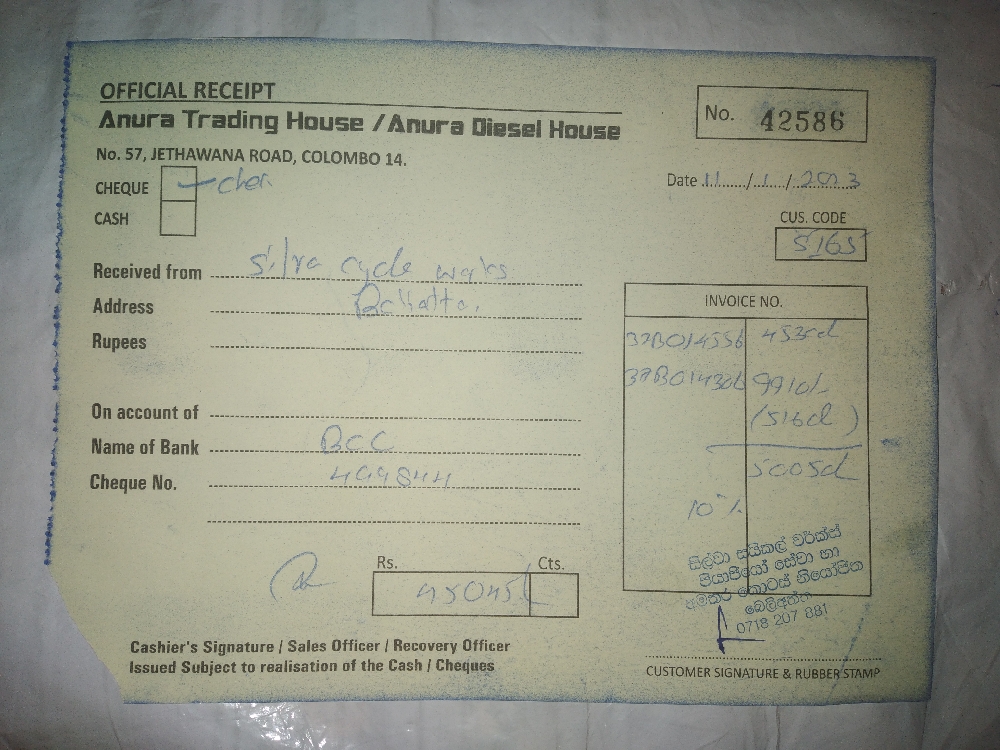 OFFICIAL RECEIPT
Anura Trading House / Anura Diesel House
No. 42586
No. 57, JETHAWANA ROAD, COLOMBO 14.
CHEQUE
CASH
Date 11/1/2023
CUS. CODE
5165
Received from Silva cycle works
Address
Rupees
On account of
Name of Bank BCC
Cheque No. 499844
INVOICE NO.
37B014556
37B014306 9910/-
10%
Rs. Cts.
45045/-
සිල්වා සයිකල් වර්ක්ස්
පියාජියෝ සේවා හා
අමතර කොටස් නියෝජිත
බෙලිඅත්ත
0718 207 881
Cashier's Signature / Sales Officer / Recovery Officer
Issued Subject to realisation of the Cash / Cheques
CUSTOMER SIGNATURE & RUBBER STAMP